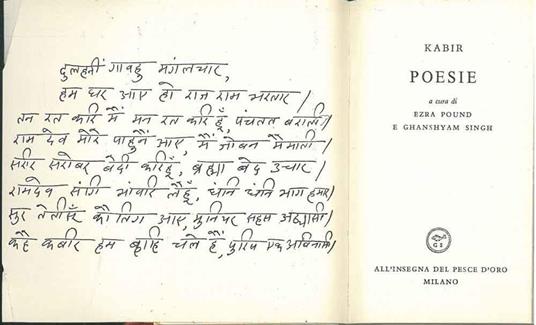 दुलहनीं गावहु मंगलचार,
हम घर आए हो राजा राम भरतार।
तन रत करि मैं मन रत करि हूँ, पंचतत बराती।
राम देव मोरे पाहुनैं आए, मैं जोबन मैंमाती।
सरीर सरोबर बेदी करिहूँ, ब्रह्मा बेद उचार।
रामदेव संगि भांवरि लैहूँ, धंनि धंनि भाग हमार।
सुर तेतीसूँ कौतिग आए, मुनिवर सहस अठ्यासी।
कहै कबीर हम ब्याहि चले हैं, पुरिष एक अविनासी।
KABIR
POESIE
a cura di
EZRA POUND
E GHANSHYAM SINGH
ALL'INSEGNA DEL PESCE D'ORO
MILANO